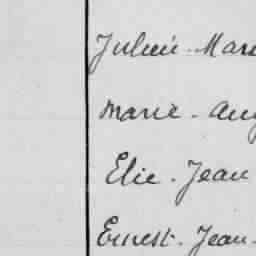 Julien - Mari
Marie - Aug
Elie - Jean
Ernest - Jean -